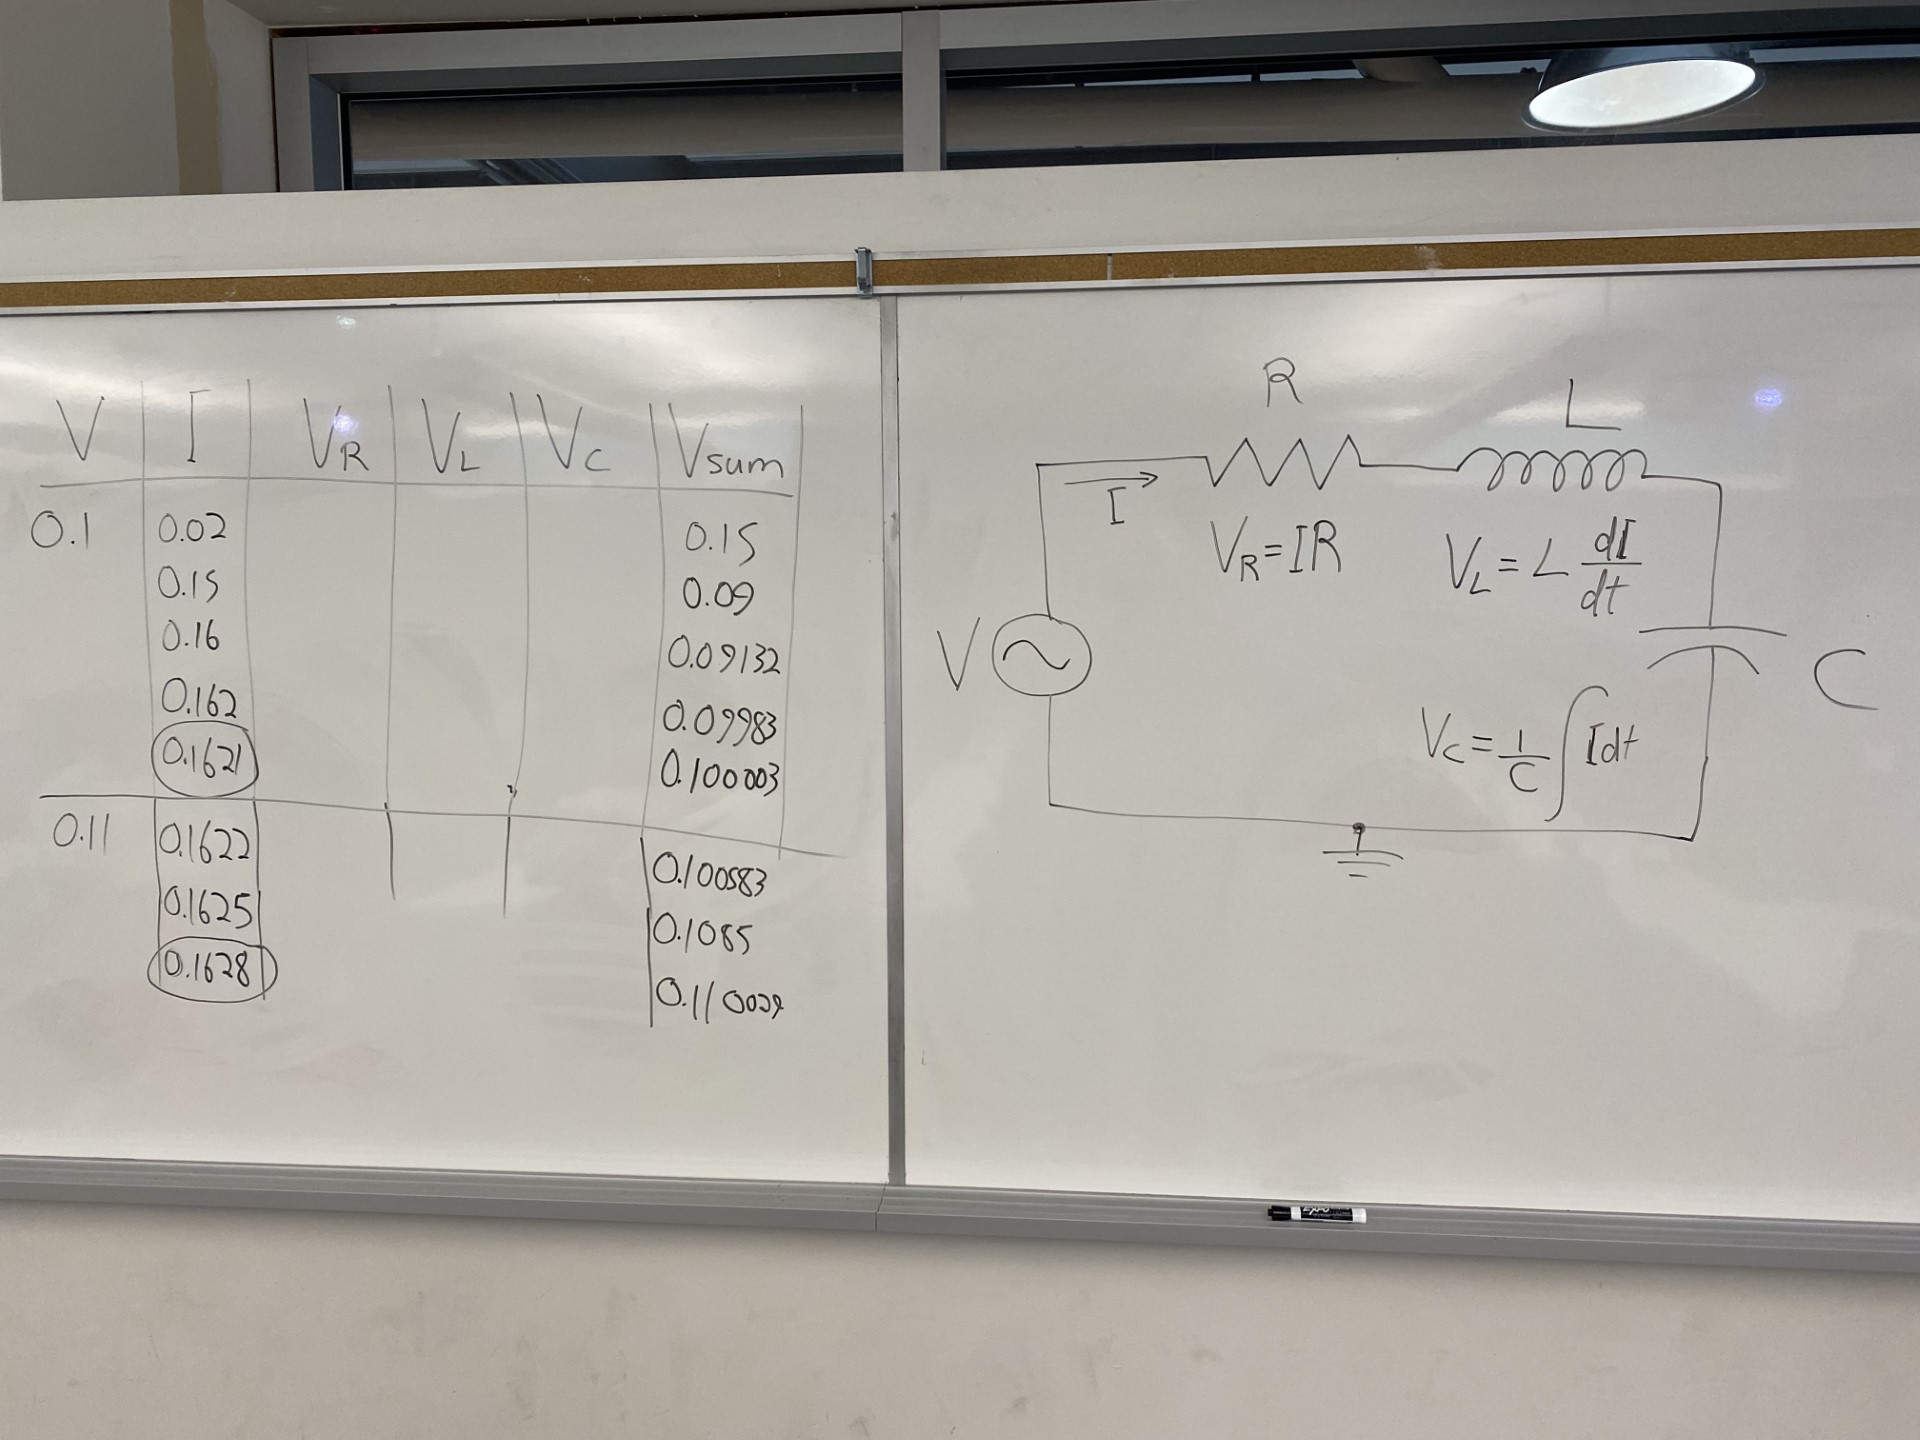 V I VR VL VC Vsum
0.1 0.02 0.15
0.15 0.09
0.16 0.09132
0.162 0.09983
0.1621 0.100003
0.11 0.1622 0.100583
0.1625 0.1085
0.1628
R
L
I
VR=IR
VL=L dI/dt
V
C
VC=1/C ∫Idt
EXPO